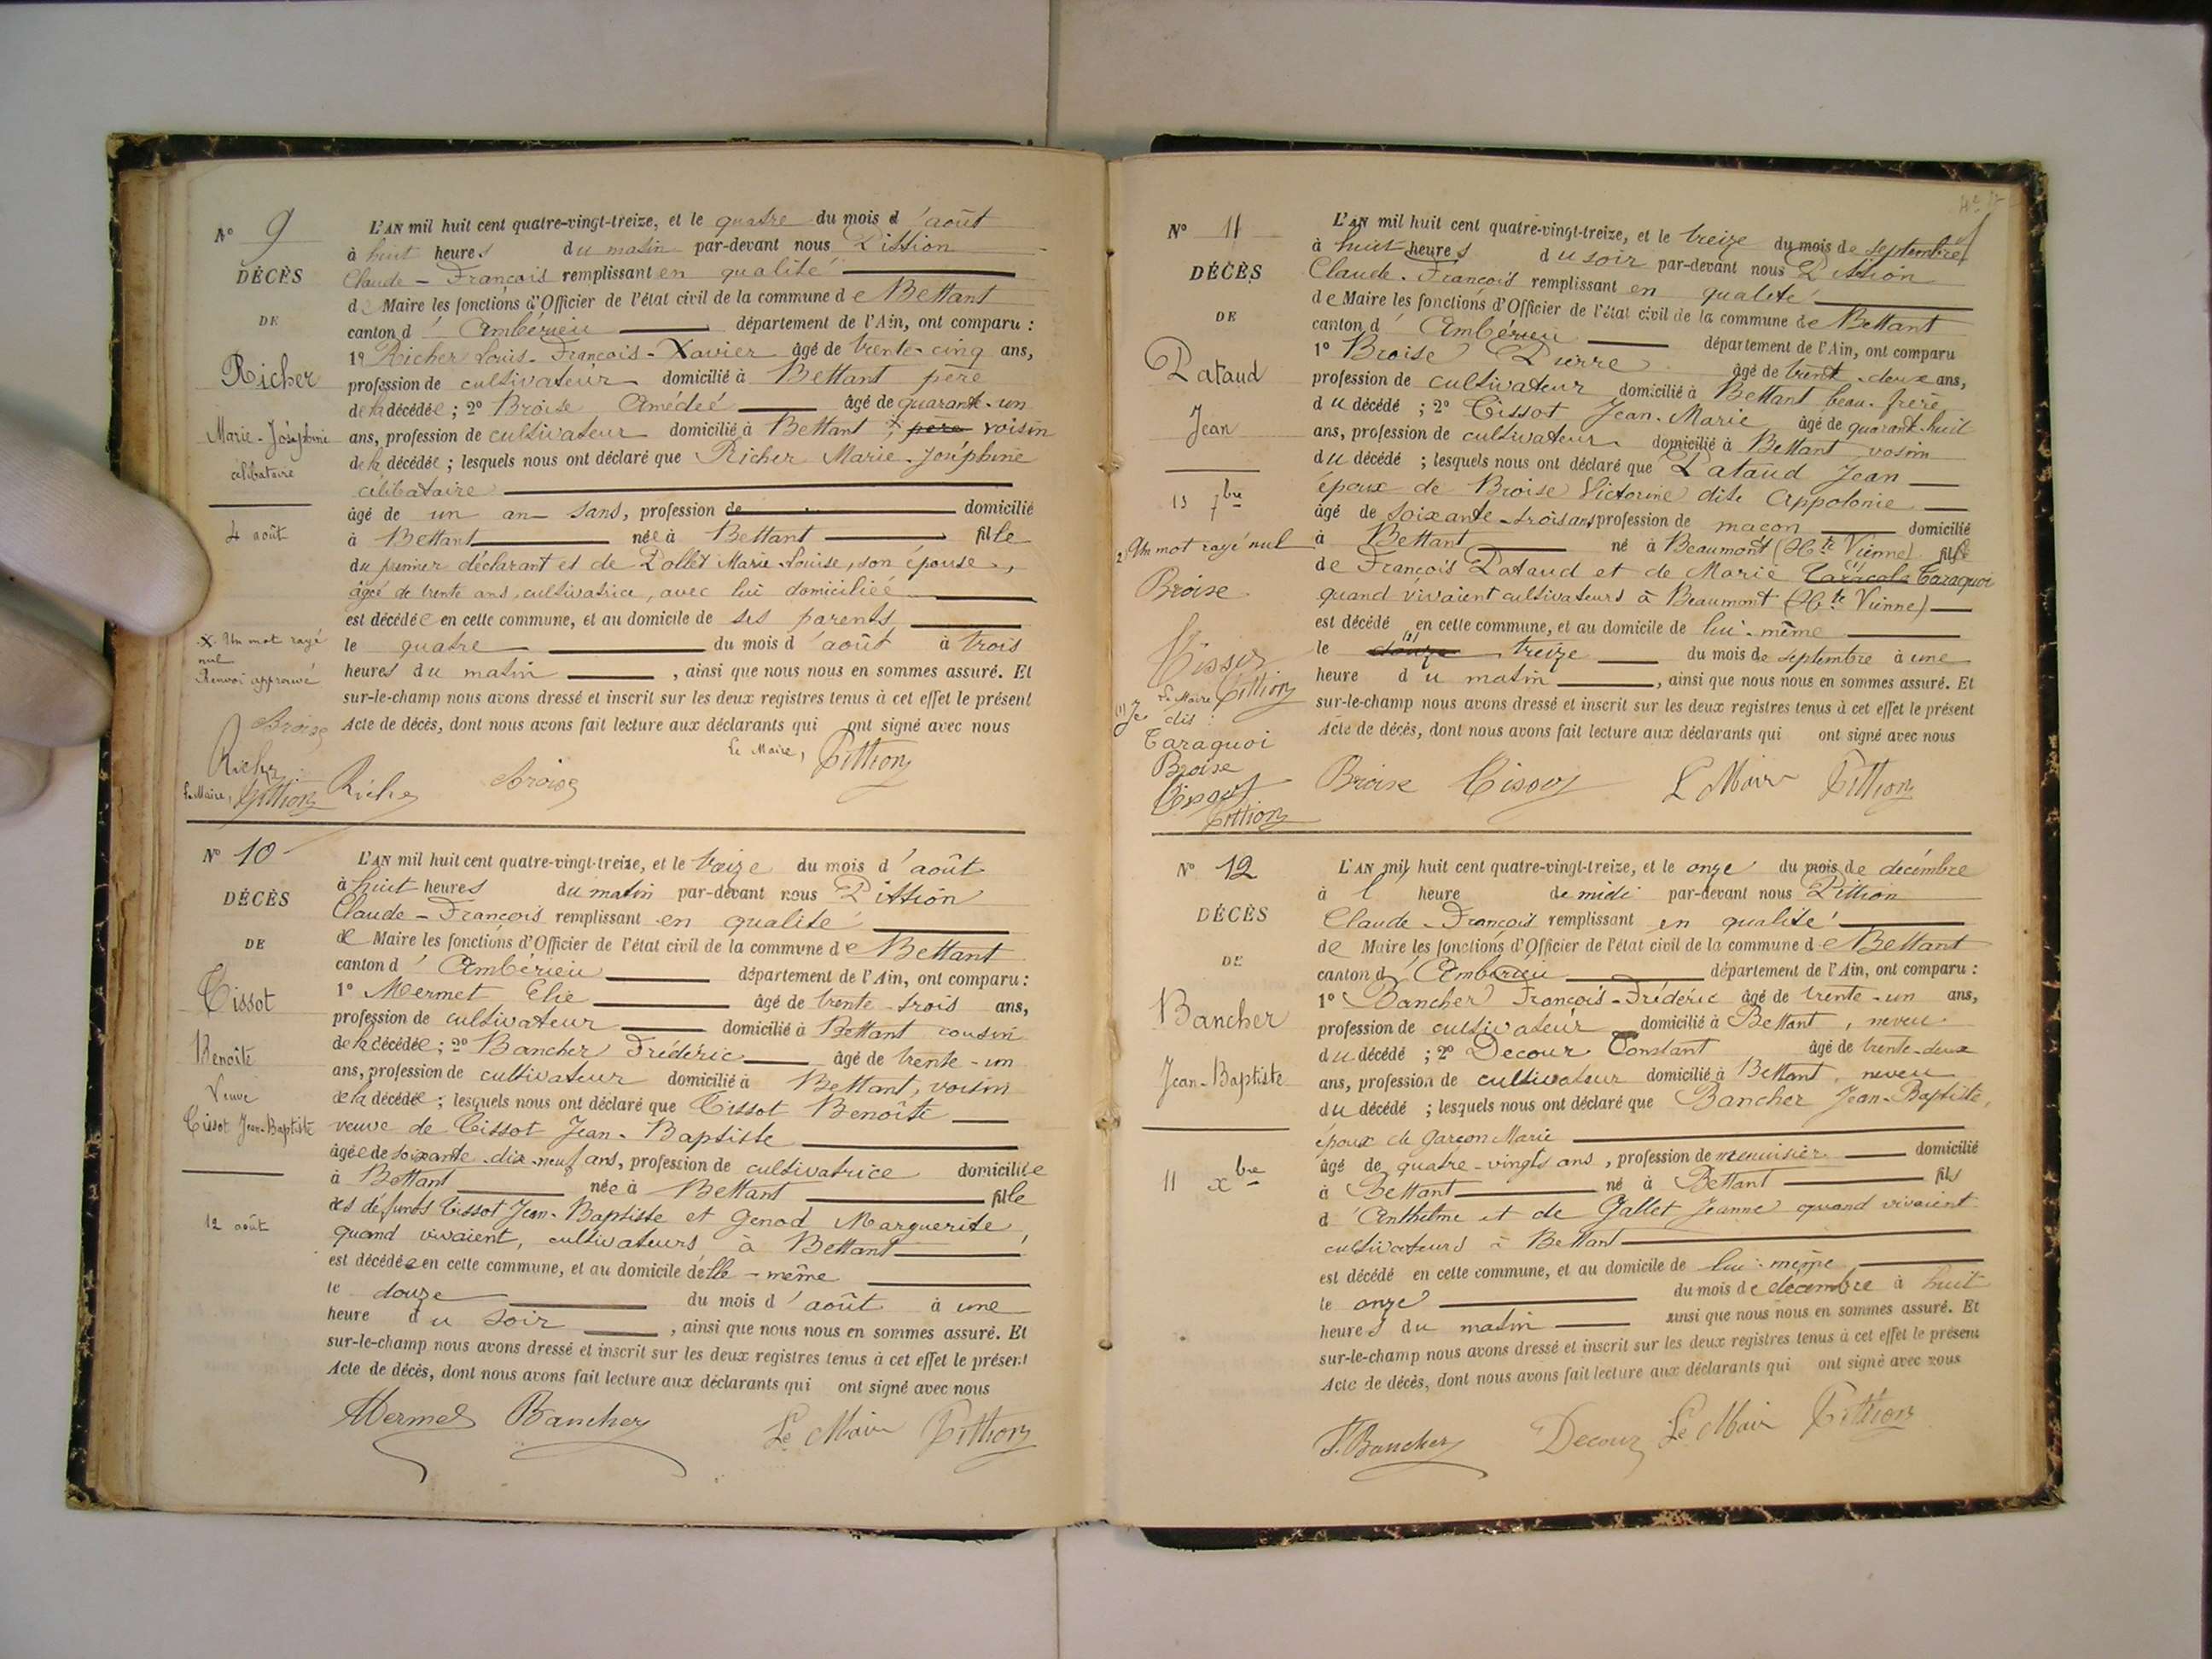 N° 9
DÉCÈS
DE
Richer
Marie-Joséphine
célibataire
4 août
X Un mot rayé
nul
Renvoi approuvé
Broise
Riche
Le Maire, Pittion
L'AN mil huit cent quatre-vingt-treize, et le quatre du mois d'août
à huit heures du matin par-devant nous Pittion
Claude-François remplissant en qualité
de Maire les fonctions d'Officier de l'état civil de la commune de Bettant
canton d'Ambérieu département de l'Ain, ont comparu :
1° Richer Louis-François-Xavier âgé de trente-cinq ans,
profession de cultivateur domicilié à Bettant père
de la décédée ; 2° Broise Amédée âgé de quarante-un
ans, profession de cultivateur domicilié à Bettant, x père voisin
de la décédée ; lesquels nous ont déclaré que Richer Marie-Joséphine
célibataire
âgé de un an sans, profession de domicilié
à Bettant née à Bettant fille
du premier déclarant et de Pollet Marie-Louise, son épouse,
âgée de trente ans, cultivatrice, avec lui domiciliée
est décédée en cette commune, et au domicile de ses parents
le quatre du mois d'août à trois
heures du matin, ainsi que nous nous en sommes assuré. Et
sur-le-champ nous avons dressé et inscrit sur les deux registres tenus à cet effet le présent
Acte de décès, dont nous avons fait lecture aux déclarants qui ont signé avec nous
Le Maire, Pittion
Riche Broise
N° 10
DÉCÈS
DE
Tissot
Benoîte
Veuve
Tissot Jean-Baptiste
12 août
L'AN mil huit cent quatre-vingt-treize, et le treize du mois d'août
à huit heures du matin par-devant nous Pittion
Claude-François remplissant en qualité
de Maire les fonctions d'Officier de l'état civil de la commune de Bettant
canton d'Ambérieu département de l'Ain, ont comparu :
1° Mermet Elie âgé de trente-trois ans,
profession de cultivateur domicilié à Bettant cousin
de la décédée ; 2° Bancher Frédéric âgé de trente-un
ans, profession de cultivateur domicilié à Bettant, voisin
de la décédée ; lesquels nous ont déclaré que Tissot Benoîte
veuve de Tissot Jean-Baptiste
âgée de soixante-dix-neuf ans, profession de cultivatrice domiciliée
à Bettant née à Bettant fille
des défunts Tissot Jean-Baptiste et Genod Marguerite,
quand vivaient, cultivateurs à Bettant
est décédée en cette commune, et au domicile d'elle-même
le douze du mois d'août à une
heure du soir, ainsi que nous nous en sommes assuré. Et
sur-le-champ nous avons dressé et inscrit sur les deux registres tenus à cet effet le présent
Acte de décès, dont nous avons fait lecture aux déclarants qui ont signé avec nous
Mermet Bancher Le Maire Pittion
N° 11
DÉCÈS
DE
Pataud
Jean
13 7bre
2 Un mot rayé nul
Broise
Tissot
Le Maire Pittion
(1) Je dis :
Taraquoi
Broise
Tissot
Pittion
L'AN mil huit cent quatre-vingt-treize, et le treize du mois de septembre
à huit heures du soir par-devant nous Pittion
Claude-François remplissant en qualité
de Maire les fonctions d'Officier de l'état civil de la commune de Bettant
canton d'Ambérieu département de l'Ain, ont comparu
1° Broise Pierre âgé de trente-deux ans,
profession de cultivateur domicilié à Bettant beau-frère
du décédé ; 2° Tissot Jean-Marie âgé de quarante-huit
ans, profession de cultivateur domicilié à Bettant voisin
du décédé ; lesquels nous ont déclaré que Pataud Jean
époux de Broise Victorine dite Appolonie
âgé de soixante-trois ans, profession de maçon domicilié
à Bettant né à Beaumont (Hte Vienne) fils
de François Pataud et de Marie (1) Taraquoi
quand vivaient cultivateurs à Beaumont (Hte Vienne)
est décédé en cette commune, et au domicile de lui-même
le douze (2) treize du mois de septembre à une
heure du matin, ainsi que nous nous en sommes assuré. Et
sur-le-champ nous avons dressé et inscrit sur les deux registres tenus à cet effet le présent
Acte de décès, dont nous avons fait lecture aux déclarants qui ont signé avec nous
Broise Tissot Le Maire Pittion
N° 12
DÉCÈS
DE
Bancher
Jean-Baptiste
11 xbre
L'AN mil huit cent quatre-vingt-treize, et le onze du mois de décembre
à l'heure de midi par-devant nous Pittion
Claude-François remplissant en qualité
de Maire les fonctions d'Officier de l'état civil de la commune de Bettant
canton d'Ambérieu département de l'Ain, ont comparu :
1° Bancher François-Frédéric âgé de trente-un ans,
profession de cultivateur domicilié à Bettant, neveu
du décédé ; 2° Decour Constant âgé de trente-deux
ans, profession de cultivateur domicilié à Bettant, neveu
du décédé ; lesquels nous ont déclaré que Bancher Jean-Baptiste,
époux de Garçon Marie
âgé de quatre-vingts ans, profession de menuisier domicilié
à Bettant né à Bettant fils
d'Anthelme et de Gallet Jeanne quand vivaient
cultivateurs à Bettant
est décédé en cette commune, et au domicile de lui-même
le onze du mois de décembre à huit
heures du matin ainsi que nous nous en sommes assuré. Et
sur-le-champ nous avons dressé et inscrit sur les deux registres tenus à cet effet le présent
Acte de décès, dont nous avons fait lecture aux déclarants qui ont signé avec nous
F. Bancher Decour Le Maire Pittion